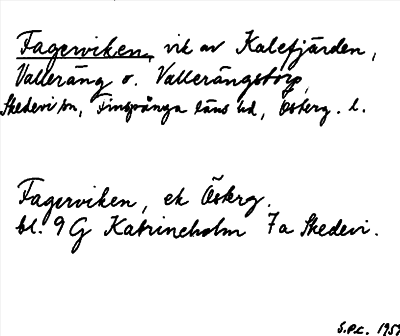 Fagerviken, vik av Kalefjärden,
Valleräng o. Vallerängstorp,
Skedevi sn, Finspånga läns hd, Österg. l.
Fagerviken, ek Österg.
bl. 9 G Katrineholm 7a Skedevi.
S.P.C. 195